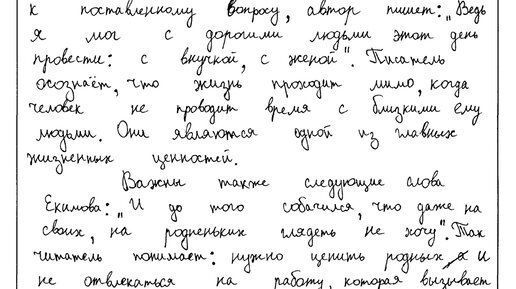 к поставленному вопросу, автор пишет: „Ведь
я мог с дорогими людьми этот день
провести: с внучкой, с женой". Писатель
осознаёт, что жизнь проходит мимо, когда
человек не проводит время с близкими ему
людьми. Они являются одной из главных
жизненных ценностей.
Важны также следующие слова
Екимова: „И до того собачился, что даже на
своих, на родненьких глядеть не хочу". Так
читатель понимает: нужно ценить родных, и
не отвлекаться на работу, которая вызывает